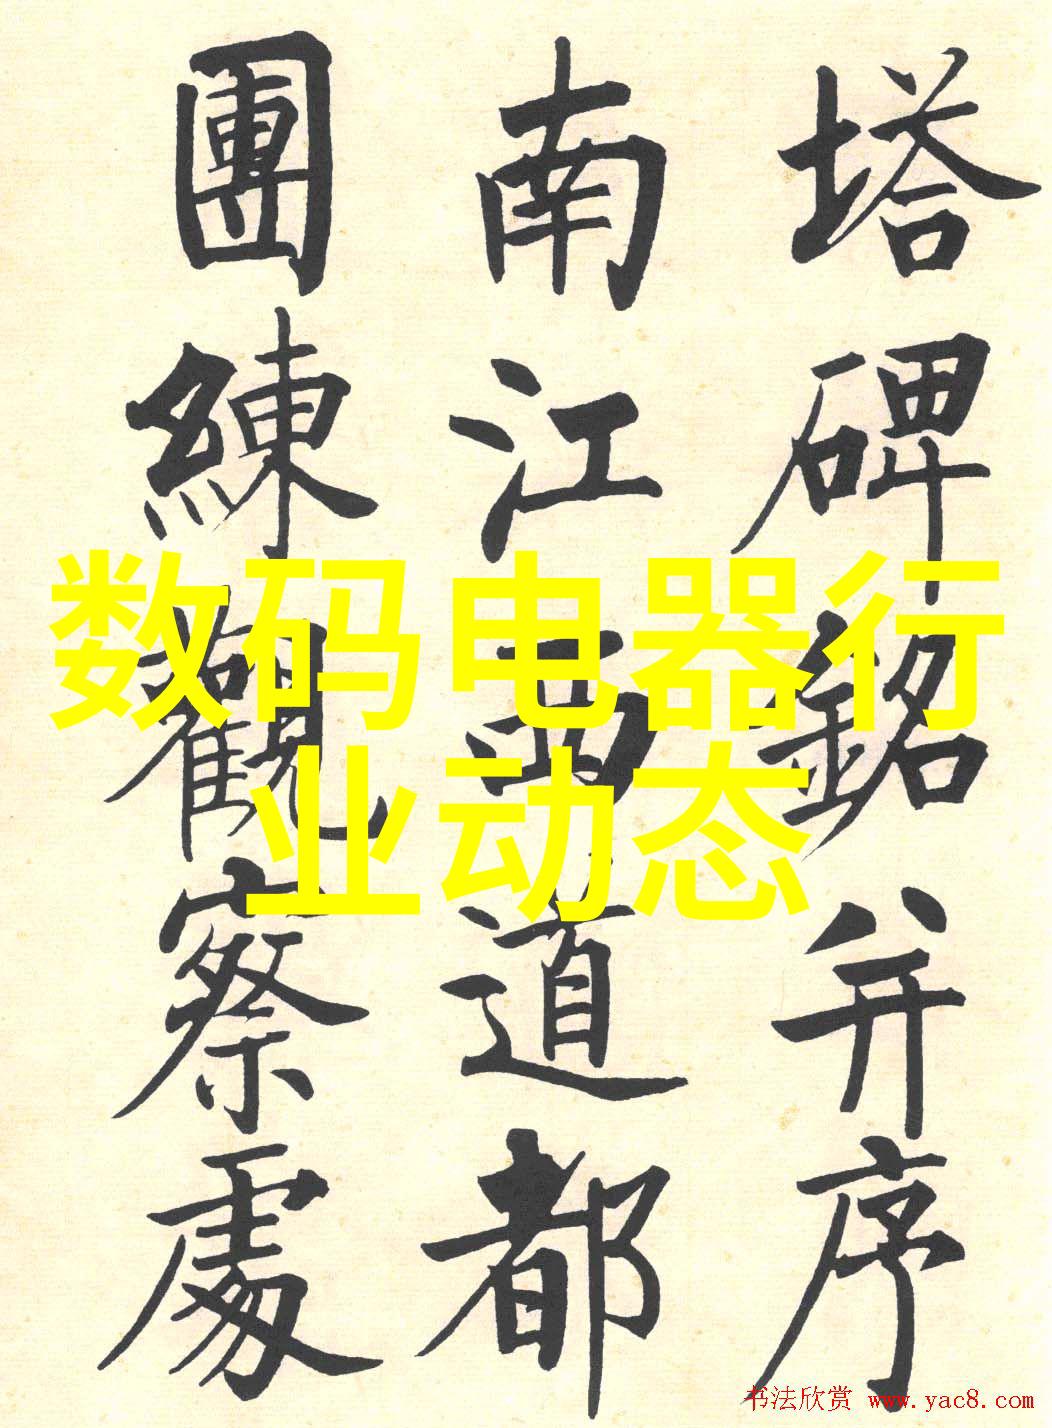 塔碑銘并序
南江西道都
團練觀察處
数码电器行
业动态
书法欣赏 www.yac8.com